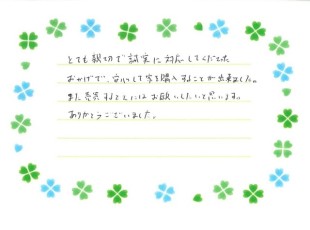 とても親切で誠実に対応してくださった
おかげで、安心して家を購入することが出来ました。
また売買するときにはお願いしたいと思います。
ありがとうございました。